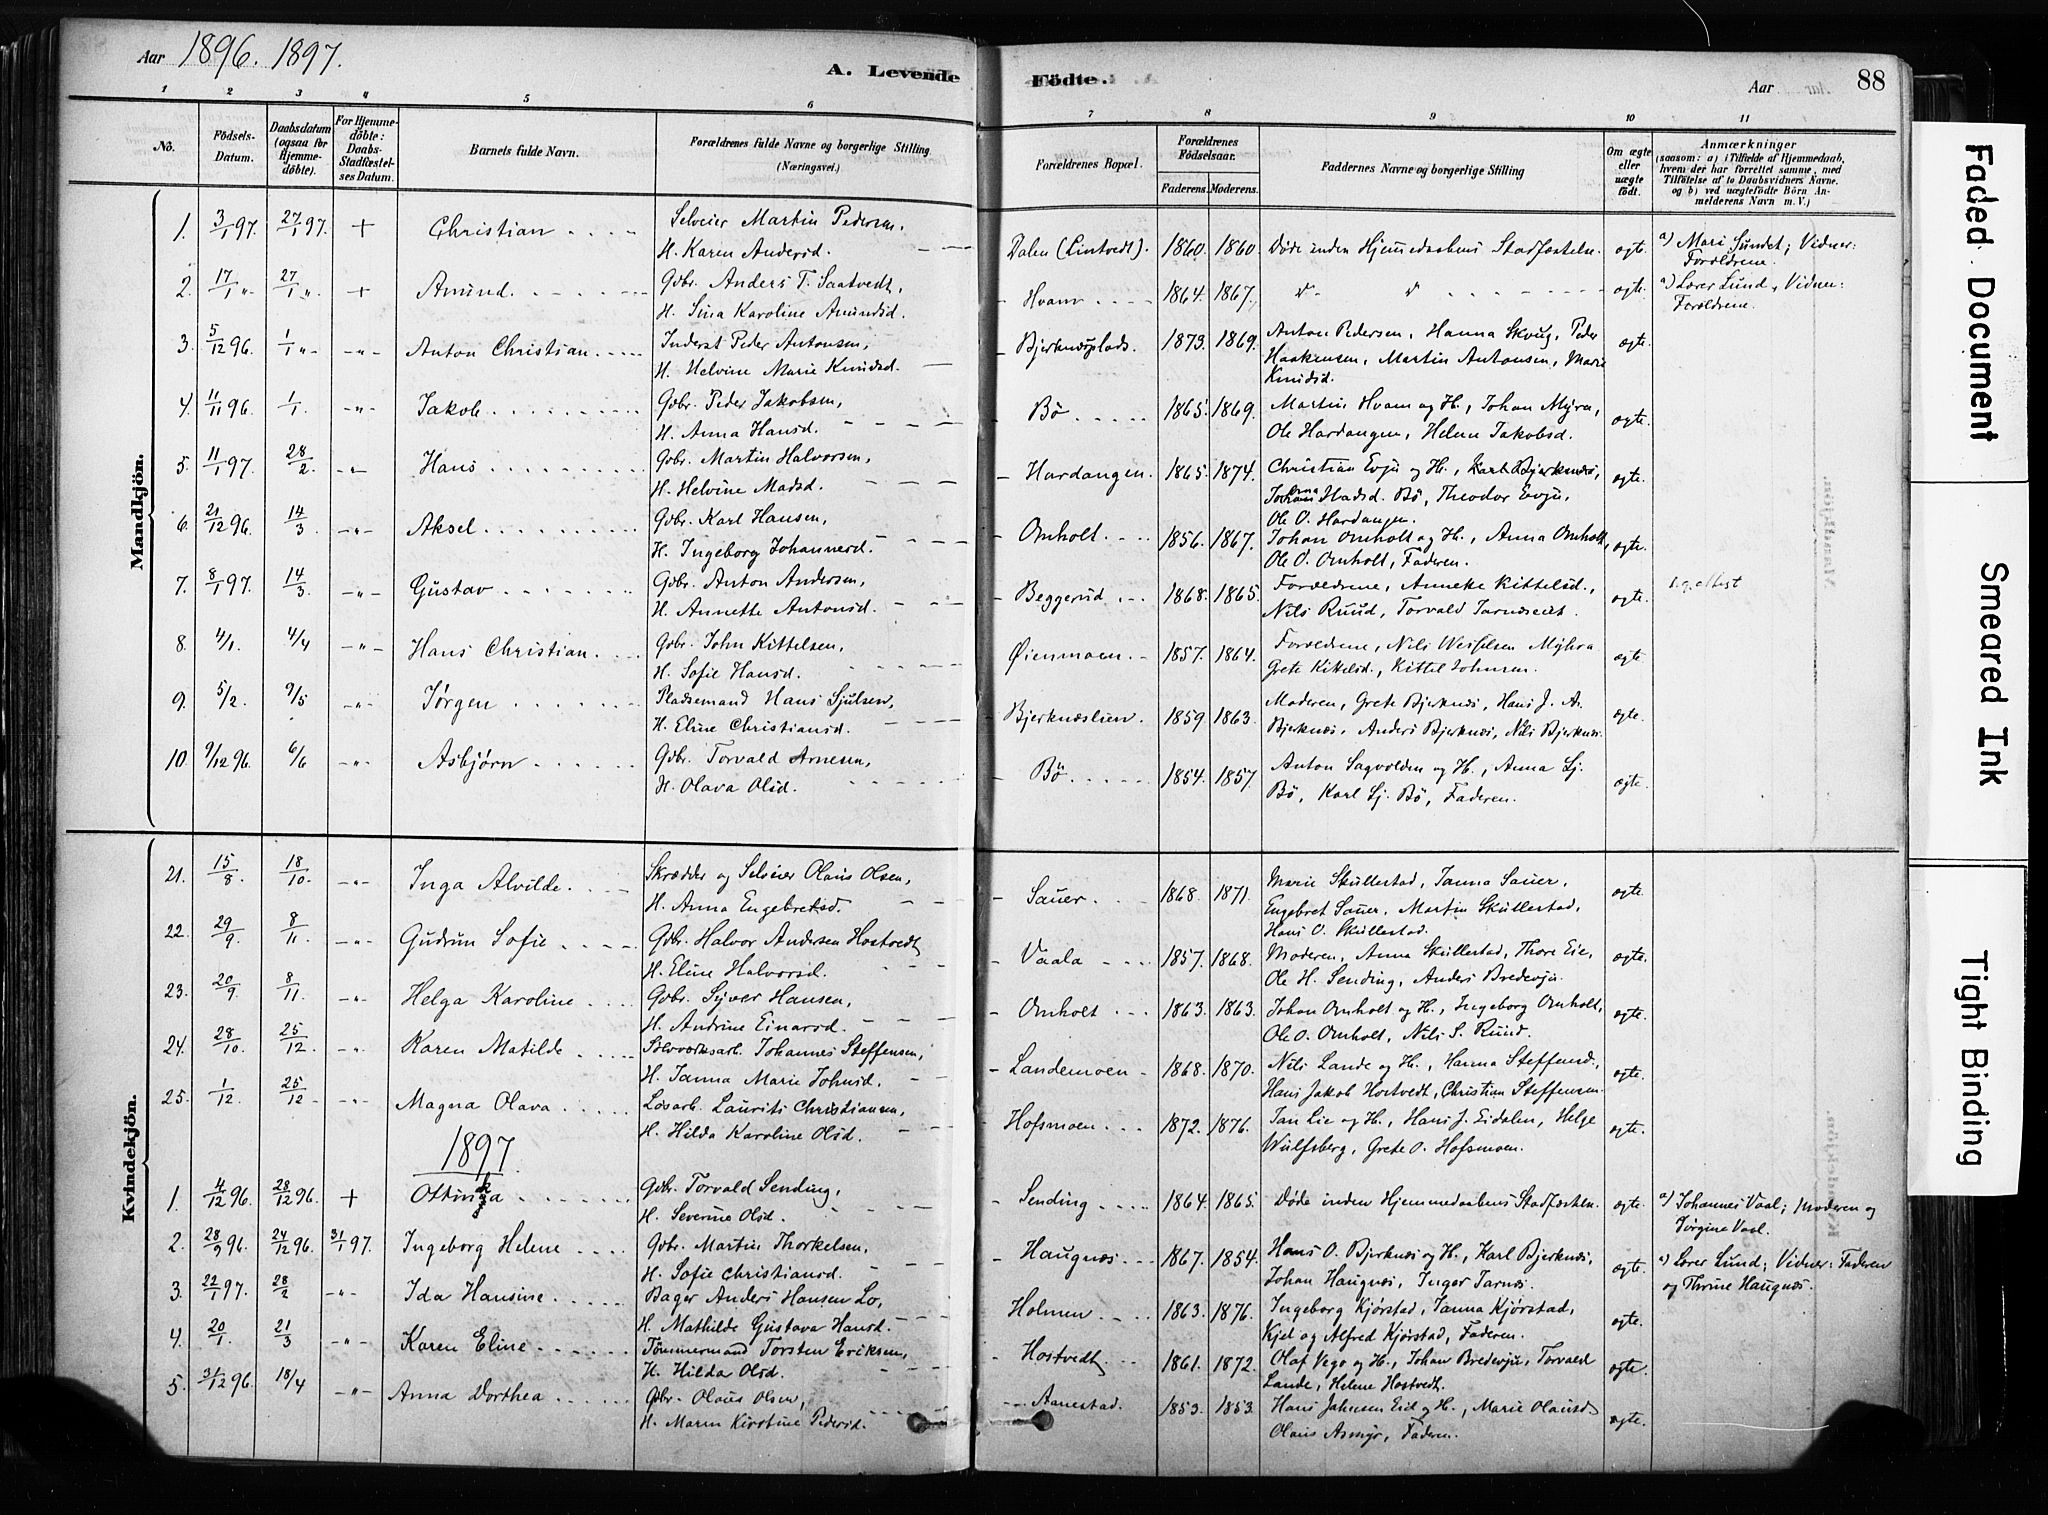 Aar 1896. 1897.
A. Levende Födte.
Aar 88
1 2 3 4 5 6 7 8 9 10 11
No.
Födsels-Datum.
Daabsdatum (ogsaa for Hjemme-döbte).
For Hjemme-döbte: Daabs-Stadfæstel-ses Datum.
Barnets fulde Navn.
Forældrenes fulde Navne og borgerlige Stilling (Næringsvei).
Forældrenes Bopæl.
Forældrenes Födselsaar.
Faderens. Moderens.
Faddernes Navne og borgerlige Stilling
Om ægte eller uægte födt.
Anmærkninger
(saasom: a) i Tilfælde af Hjemmedaab, hvem der har forrettet samme, med Tilföielse af to Daabsvidners Navne. og b) ved uægtefödte Börn An-melderens Navn m. V.)
Mandkjön.
1. 3/1 97. 27/1 97. + Christian Selveier Martin Pedersen, Dalen (Lintvedt). 1860. 1860. Døde inden Hjemmedaabens Stadfæstelse. ægte. a) Mari Sundet; Vidner:
H. Karen Andersd. Forældrene.
2. 17/1 " 27/1 " + Amund. Gdbr. Anders T. Saatvedt, Hvam 1864. 1867. ægte. a) Lærer Lund, Vidner:
H. Sina Karoline Amundsd. Forældrene.
3. 5/12 96. 1/1 " -"- Anton Christian. Inderst Peder Antonsen, Bjerknæsplads. 1873. 1869. Anton Pedersen, Hanna Skoug, Peder ægte.
H. Helvine Marie Knudsd. Haakensen, Martin Antonsen, Marie
Knudsd.
4. 11/11 96. 1/1. -"- Jakob. Gdbr. Peder Jakobsen, Bö 1865. 1869. Martin Hvam og H., Johan Myra, ægte.
H. Anna Hansd. Ole Hardangen, Helene Jakobsd.
5. 11/1 97. 28/2. -"- Hans Gdbr. Martin Halvorsen, Hardangen. 1865. 1874. Christian Evju og H., Karl Bjerknæs, ægte.
H. Helvine Madsd. Madsd. Bö, Theodor Evju,
Ole O. Hardangen.
6. 21/12 96. 14/3 -"- Aksel Gdbr. Karl Hansen, Omholt. 1856. 1867. Johan Omholt og H., Anna Omholt, ægte.
H. Ingeborg Johannesd. Ole O. Omholt, Faderen.
7. 8/1 97. 14/3. -"- Gustav Gdbr. Anton Andersen, Beggerud 1868. 1865. Forældrene, Anneke Kittelsd., ægte.
H. Annette Antonsd. Nils Ruud, Torvald
8. 4/1. 4/4 -"- Hans Christian. Gdbr. John Kittelsen, Øienmoen. 1857. 1864. Forældrene, Nils Wesselsen Myhra ægte.
H. Sofie Hansd. Grete Kittelsd, Kittel Johnsen.
9. 5/2. 9/5 -"- Jørgen Pladsemand Hans Sjulsen, Bjerknæslien. 1859 1863. Moderen, Grete Bjerknæs, Hans J. A. ægte.
H. Eline Christiansd. Bjerknæs, Anders Bjerknæs, Nils Bjerknæs.
10. 9/12 96. 6/6 -"- Asbjørn Gdbr. Torvald Arnesen, Bö. 1854. 1857. Anton Sagvolden og H., Anna Sj. ægte.
H. Olava Olsd. Bö, Karl Sj. Bö, Faderen.
Kvindekjön.
21. 15/8 18/10. -"- Inga Alvilde. Skrædder og Selveier Olaus Olsen, Sauer. 1868. 1871. Marie Skullestad, Janna Sauer, ægte.
H. Anna Engebretsd. Engebret Sauer, Martin Skullestad,
Hans O. Skullestad.
22. 29/9. 8/11. -"- Gudrun Sofie Gdbr. Halvor Andersen Hostvedt Vaala 1857. 1868. Moderen, Anna Skullestad, Thore Eie, ægte.
H. Eline Halvorsd. Ole H. Sending, Anders Bredevju.
23. 20/9. 8/11 -"- Helga Karoline Gdbr. Syver Hansen, Omholt 1863. 1863. Johan Omholt og H., Ingeborg Omholt, ægte.
H. Andrine Einarsd. Ole O. Omholt, Nils S. Ruud.
24. 28/10. 25/12. -"- Karen Matilde Johannes Steffensen, Landemoen 1868. 1870. Nils Lande og H., Hanna Steffensd. ægte.
H. Janna Marie Johnsd. Hans Jakob Hostvedt, Christian Steffensen.
25. 1/12. 25/12. -"- Magna Olava Løsarb. Laurits Christiansen, Hofsmoen. 1872. 1876. Jan Lie og H., Hans J. Eidalen, Helge ægte.
H. Hilda Karoline Olsd. Wulfsberg, Grete O. Hofsmoen.
1897.
1. 4/12 96. 28/12 96. + Gdbr. Torvald Sending, Sending 1864. 1865. Døde inden Hjemmedaabens Stadfæstelse. ægte. a) Johannes Vaal; Moderen og
H. Severine Olsd. Jørgine Vaal.
2. 28/9 96. 24/12 96. 31/1 97. Ingeborg Helene Gdbr. Martin Thorkelsen, Haugnæs 1867. 1854. Hans O. Bjerknæs og H., Karl Bjerknæs, ægte. a) Lærer Lund; Vidner: Faderen
H. Sofie Christiansd. Johan Haugnæs, Inger Jarnæs. og Thrine Haugnæs.
3. 22/1 97. 28/2 -"- Ida Hansine Bager Anders Hansen Lo, Holmen 1863. 1876. Ingeborg Kjørstad, Janna Kjørstad, ægte.
H. Mathilde Gustava Hansd. Kjel og Alfred Kjørstad, Faderen.
4. 20/1. 21/3 -"- Karen Eline Tømmermand Torsten Eriksen, Hostvedt 1861. 1872. Olaf Vego og H., Johan Bredevju, Torvald ægte.
H. Hilda Olsd. Lande, Helene Hostvedt.
5. 31/12 96. 18/4 -"- Anna Dorthea Gdbr. Olaus Olsen, Aanestad. 1853. 1853. Hans Jahnsen Eid og H., Marie Olausd. ægte.
H. Maren Kirstine Pedersd. Olaus Asmyr, Faderen.
Faded Document
Smeared Ink
Tight Binding